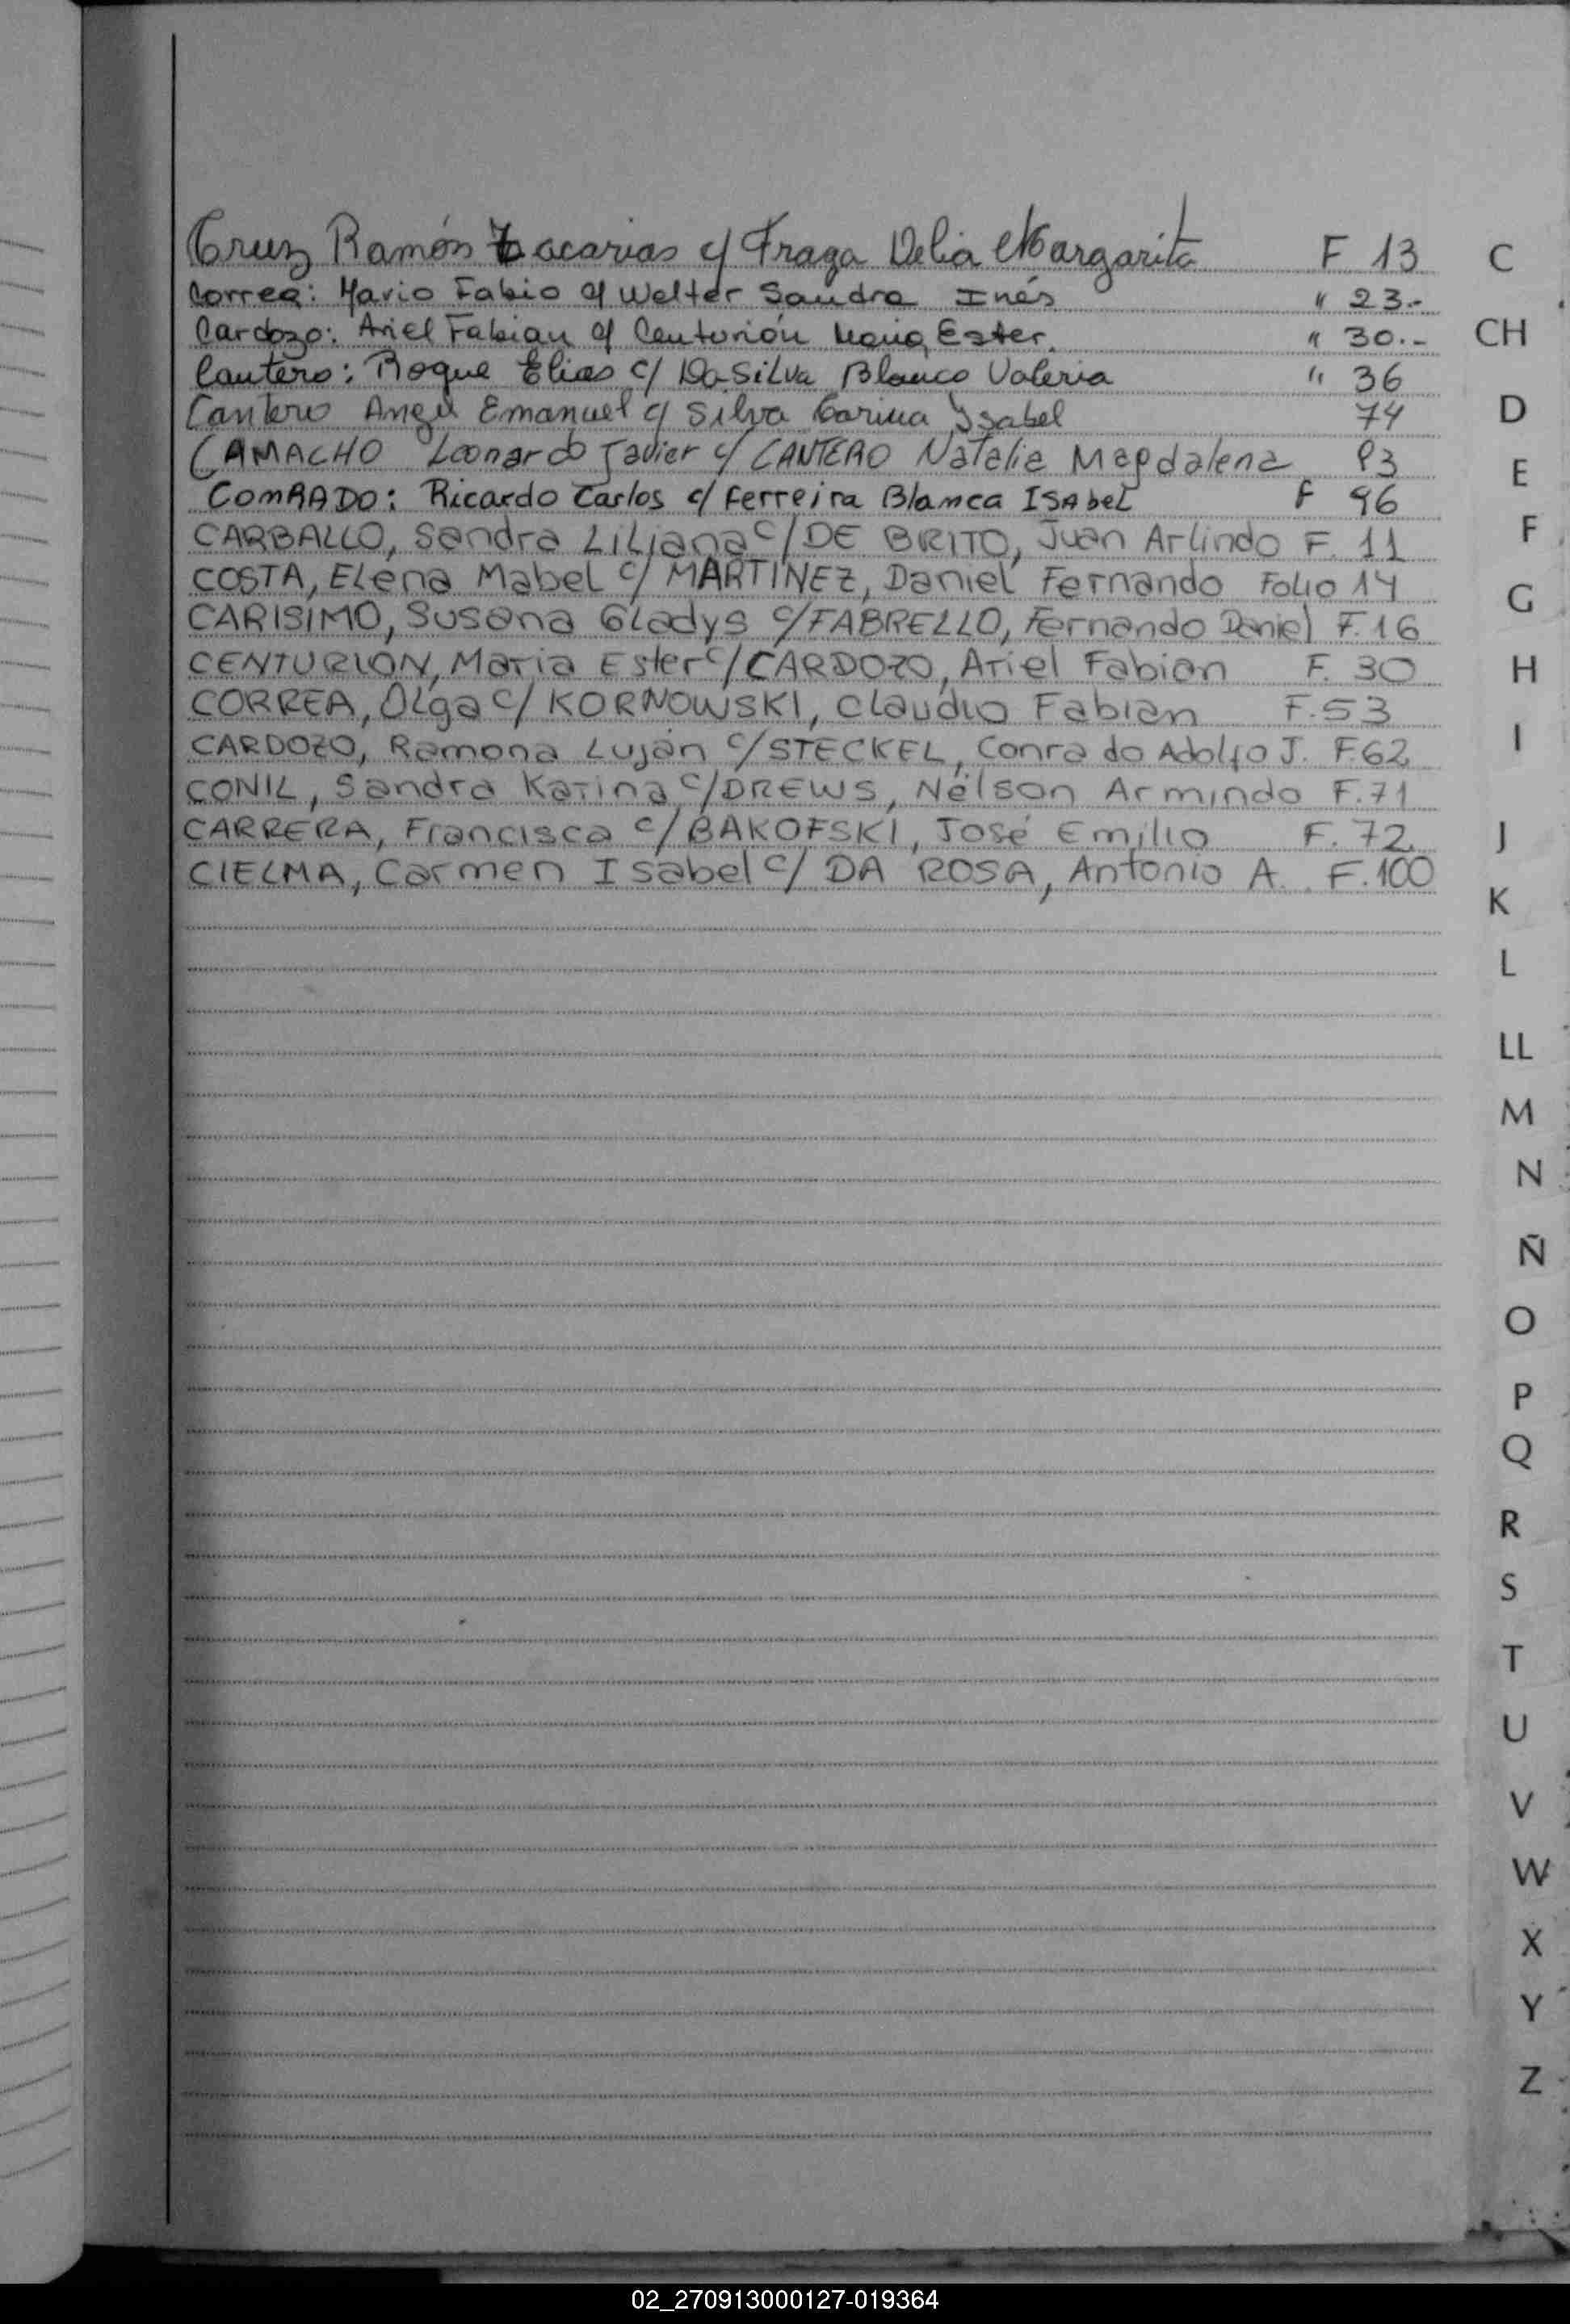 Cruz Ramón Zacarias c/ Fraga Delia Margarita F 13
Correa: Mario Fabio c/ Welter Sandra Inés " 23.-
Cardozo: Ariel Fabian c/ Centurión Maria Ester. " 30.-
Cantero: Roque Elias c/ DaSilva Blanca Valeria " 36
Cantero Angel Emanuel c/ Silva Carina Ysabel 74
CAMACHO Leonardo Javier c/ CANTERO Natalia Magdalena 83
ComRADO: Ricardo Carlos c/ Ferreira Blanca ISAbeL F 96
CARBALLO, Sandra LiLiana c/ DE BRITO, Juan Arlindo F. 11
COSTA, ELena Mabel c/ MARTINEZ, Daniel Fernando Folio 14
CARISIMO, Susana Gladys c/ FABRELLO, Fernando Daniel F. 16
CENTURION, Maria Ester c/ CARDOZO, Ariel Fabian F. 30
CORREA, OLga c/ KORNOWSKI, Claudio Fabian F. 53
CARDOZO, Ramona Luján c/ STECKEL, Conrado Adolfo J. F. 62
CONIL, Sandra Karina c/ DREWS, Nelson Armindo F. 71
CARRERA, Francisca c/ BAKOFSKI, José Emilio F. 72
CIELMA, Carmen Isabel c/ DA ROSA, Antonio A. F. 100
C
CH
D
E
F
G
H
I
J
K
L
LL
M
N
Ñ
O
P
Q
R
S
T
U
V
W
X
Y
Z
02_270913000127-019364